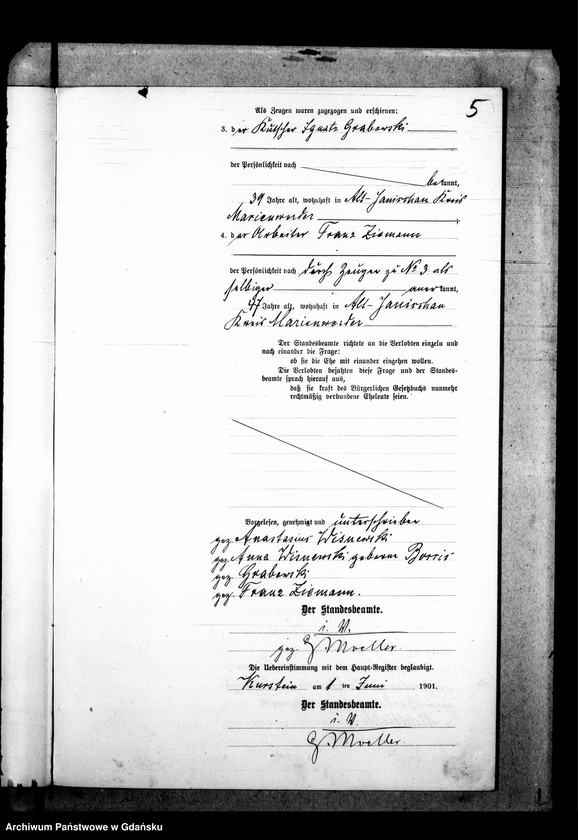 5
Als Zeugen waren zugezogen und erschienen:
3. der Kutscher Ignatz Grabowski
der Persönlichkeit nach
bekannt,
39 Jahre alt, wohnhaft in Alt-Janischau Kreis
Marienwerder
4. der Arbeiter Franz Ziemann
der Persönlichkeit nach durch Zeugen zu No 3 als
selbiger anerkannt,
47 Jahre alt, wohnhaft in Alt-Janischau
Kreis Marienwerder
Der Standesbeamte richtete an die Verlobten einzeln und
nach einander die Frage:
ob sie die Ehe mit einander eingehen wollen.
Die Verlobten bejahten diese Frage und der Standes-
beamte sprach hierauf aus,
daß sie kraft des Bürgerlichen Gesetzbuchs nunmehr
rechtmäßig verbundene Eheleute seien.
Vorgelesen, genehmigt und unterschrieben
gez. Anastasius Wisnewski
gez. Anna Wisnewski geborene
gez. Grabowski
gez. Franz Ziemann.
Der Standesbeamte.
i. V.
gez. Moeller.
Die Uebereinstimmung mit dem Haupt-Register beglaubigt.
am ten Juni 1901.
Der Standesbeamte.
i. V.
Moeller
Archiwum Państwowe w Gdańsku